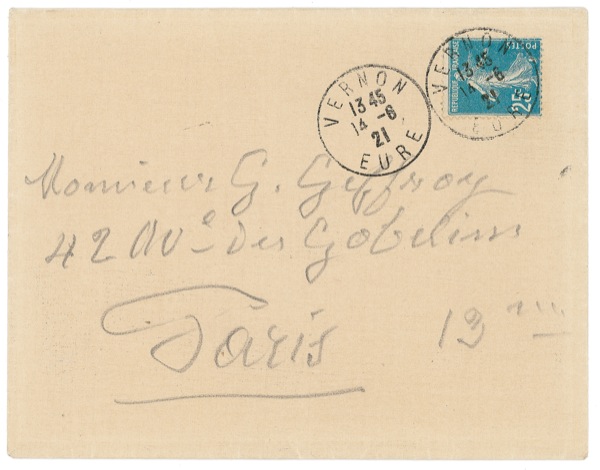 VERNON
13 45
14 -6
21
EURE
VERNON
13 45
14 -6
21
EURE
POSTES
REPUBLIQUE FRANÇAISE
25c
Monsieur G. Geffroy
42 Ave des Gobelins
Paris 13me